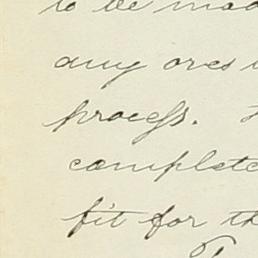 to be mad
any ores
process.
complete
fit for th